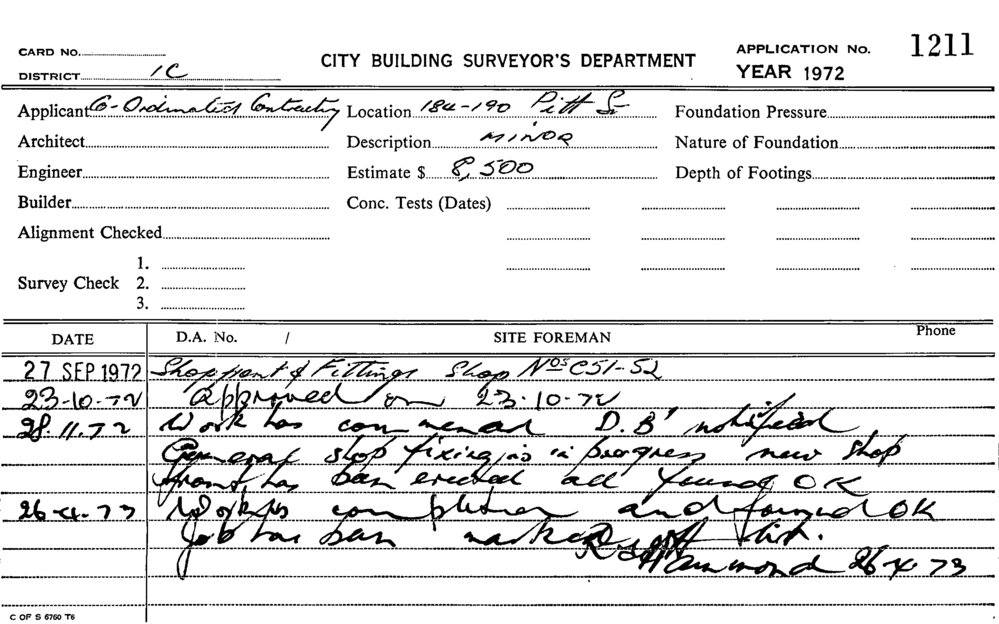 CARD No.
DISTRICT 1C
CITY BUILDING SURVEYOR'S DEPARTMENT
APPLICATION No. 1211
YEAR 1972
Applicant Co-Ordinated Contracting
Location 184-190 Pitt St
Foundation Pressure
Architect
Description MINOR
Nature of Foundation
Engineer
Estimate $ 8,500
Depth of Footings
Builder
Conc. Tests (Dates)
Alignment Checked
Survey Check
1.
2.
3.
DATE D.A. No. / SITE FOREMAN Phone
27 SEP 1972 Shopfront & Fittings Shop Nos C51-52
23-10-72 Approved on 23-10-72
28.11.72 Work has commenced D.B' notified
General shop fixing is in progress new shop
front has been erected all found OK
26-4-73 Work is completed and found OK
Job has been marked off list.
Hammond 26-4-73
C OF S 6760 T6